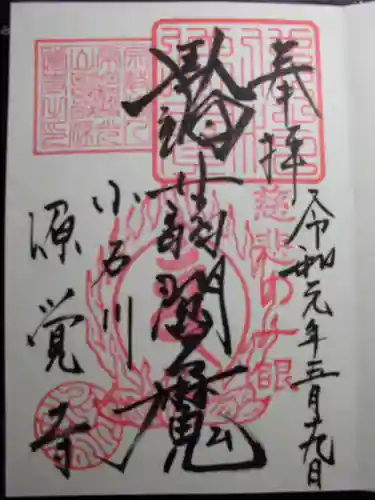 奉拝
令和元年五月十九日
慈悲の
眼
蒟蒻閻魔
小石川
源覚寺